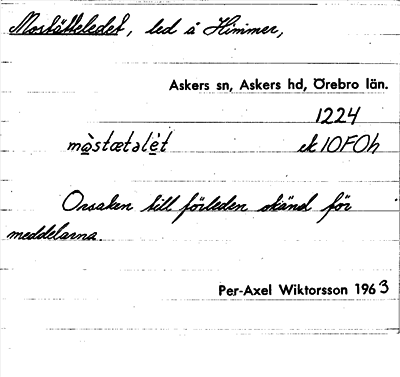 Mostätteledet, led å Himmer,
Askers sn, Askers hd, Örebro län.
1224
màstætəlèt ek 10F0h
Orsaken till förleden okänd för
meddelarna.
Per-Axel Wiktorsson 1963